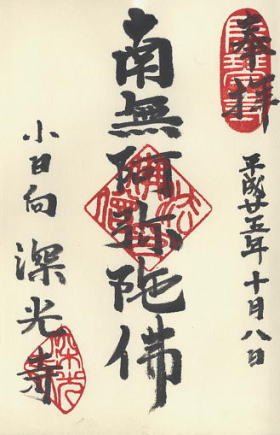 奉拝
平成廿五年十月八日
南無阿弥陀佛
小日向 深光寺